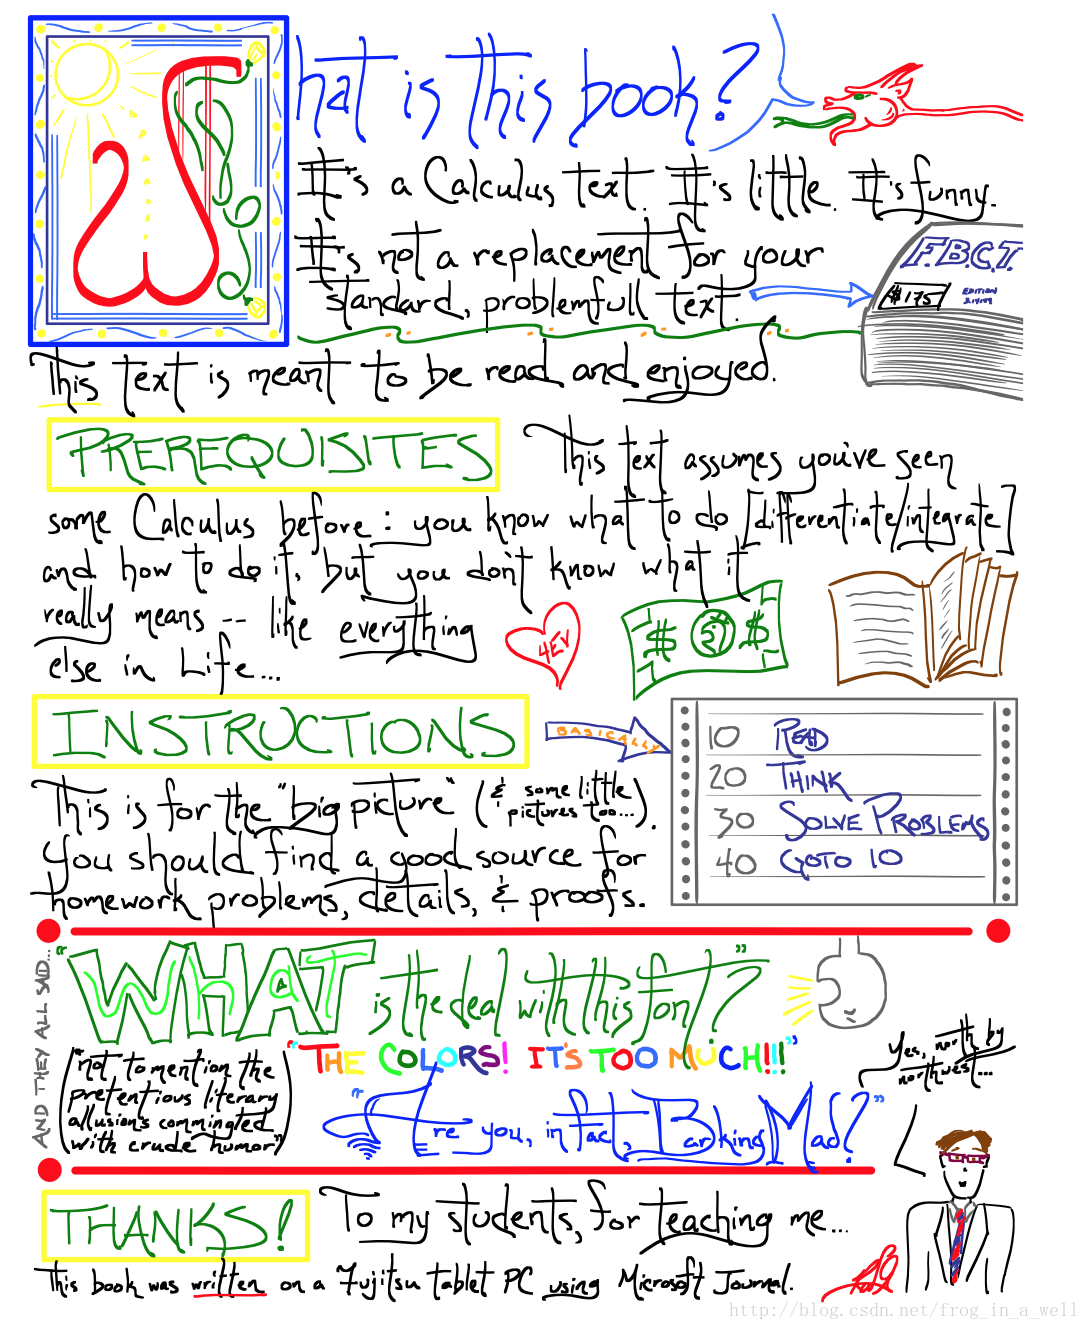 What is this book?
It's a Calculus text. It's little. It's funny.
It's not a replacement for your
standard, problemfull text.
F.B.C.T
$175
EDITION
This text is meant to be read and enjoyed.
PREREQUISITES
This text assumes you've seen
some Calculus before: you know what to do [differentiate/integrate]
and how to do it, but you don't know what it
really means -- like everything
else in Life...
4EV
$ $
INSTRUCTIONS
BASICALLY
10 READ
20 THINK
30 SOLVE PROBLEMS
40 GOTO 10
This is for the "big picture" (& some little pictures too...).
You should find a good source for
homework problems, details, & proofs.
AND THEY ALL SAID...
"WHAT is the deal with this font?"
"THE COLORS! IT'S TOO MUCH!!!"
("not to mention the
pretentious literary
allusion's commingled
with crude humor")
"Are you, in fact, Barking Mad?"
Yes, north by
northwest...
THANKS!
To my students, for teaching me...
This book was written on a Fujitsu tablet PC using Microsoft Journal.
http://blog.csdn.net/frog_in_a_well